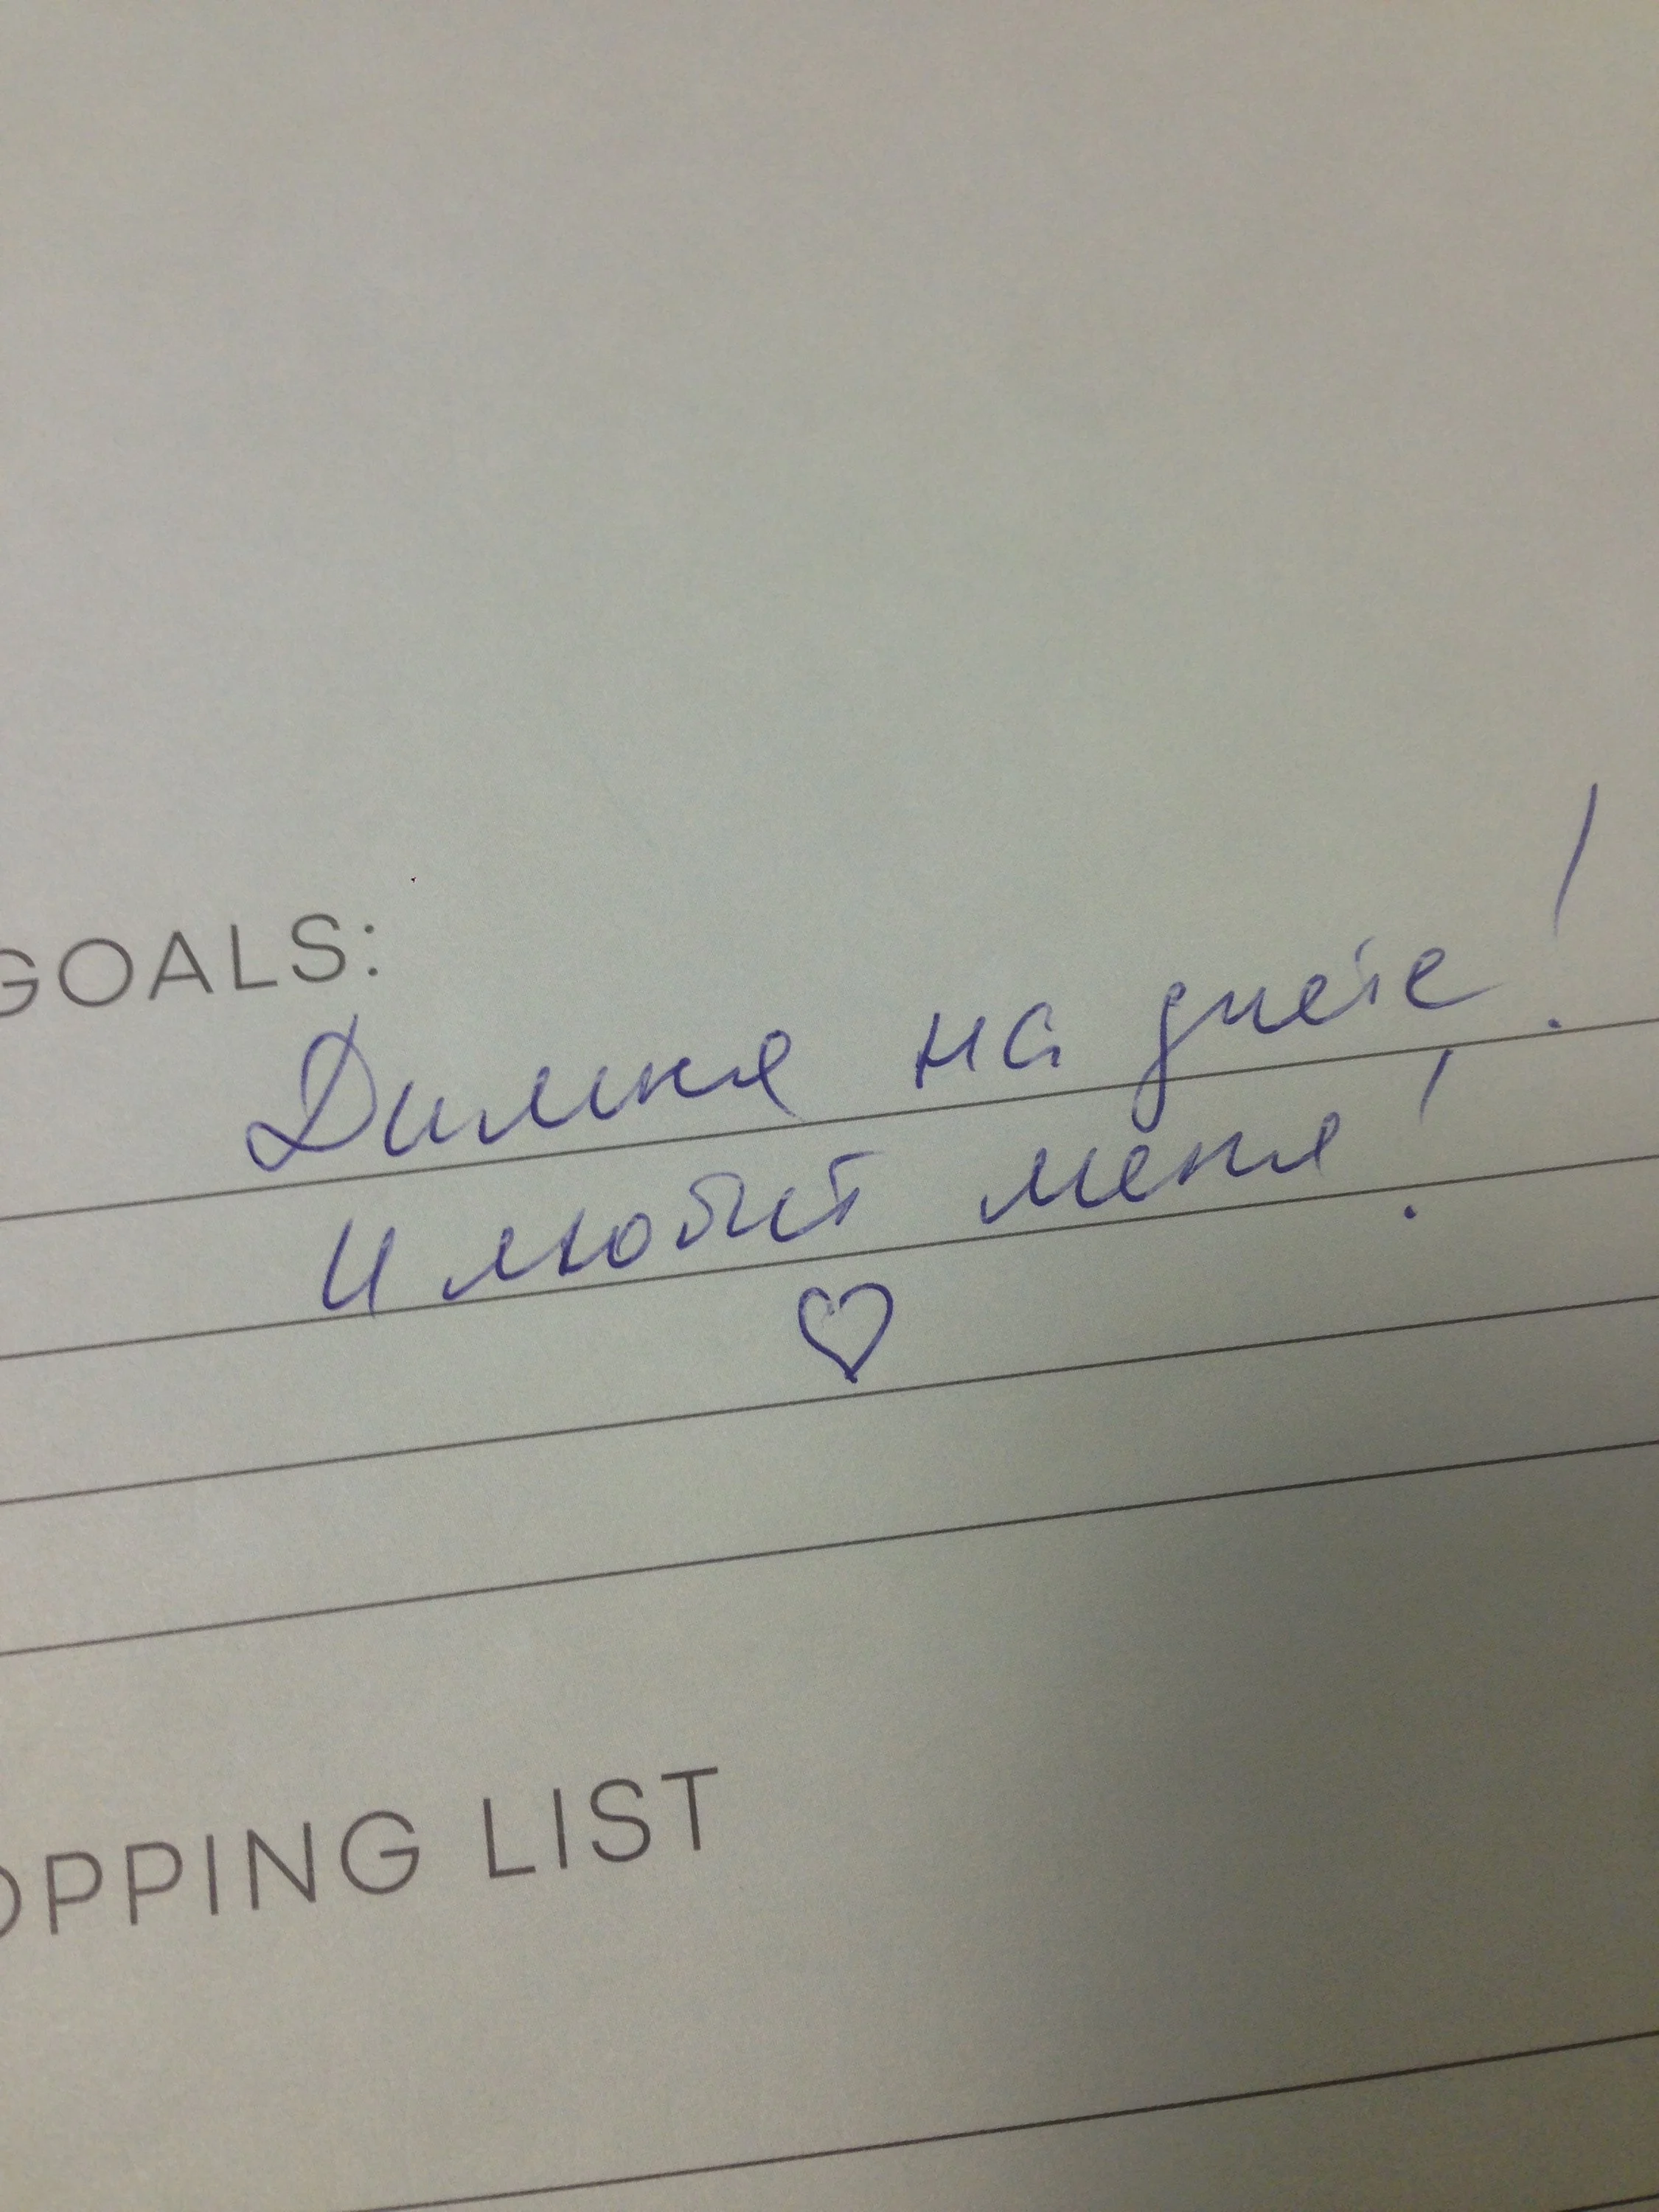 GOALS:
Димка на диете!
И любит меня!
OPPING LIST